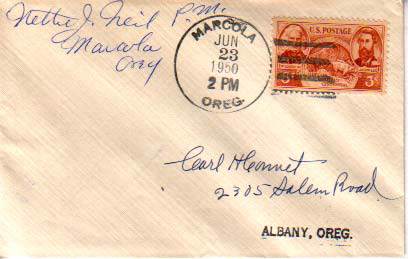 Netty J. Neil P.M.
Marcola
Oreg
MARCOLA
JUN
23
1950
2 PM
OREG.
U.S. POSTAGE
3¢
Carl H
2305 Salem Road
ALBANY, OREG.